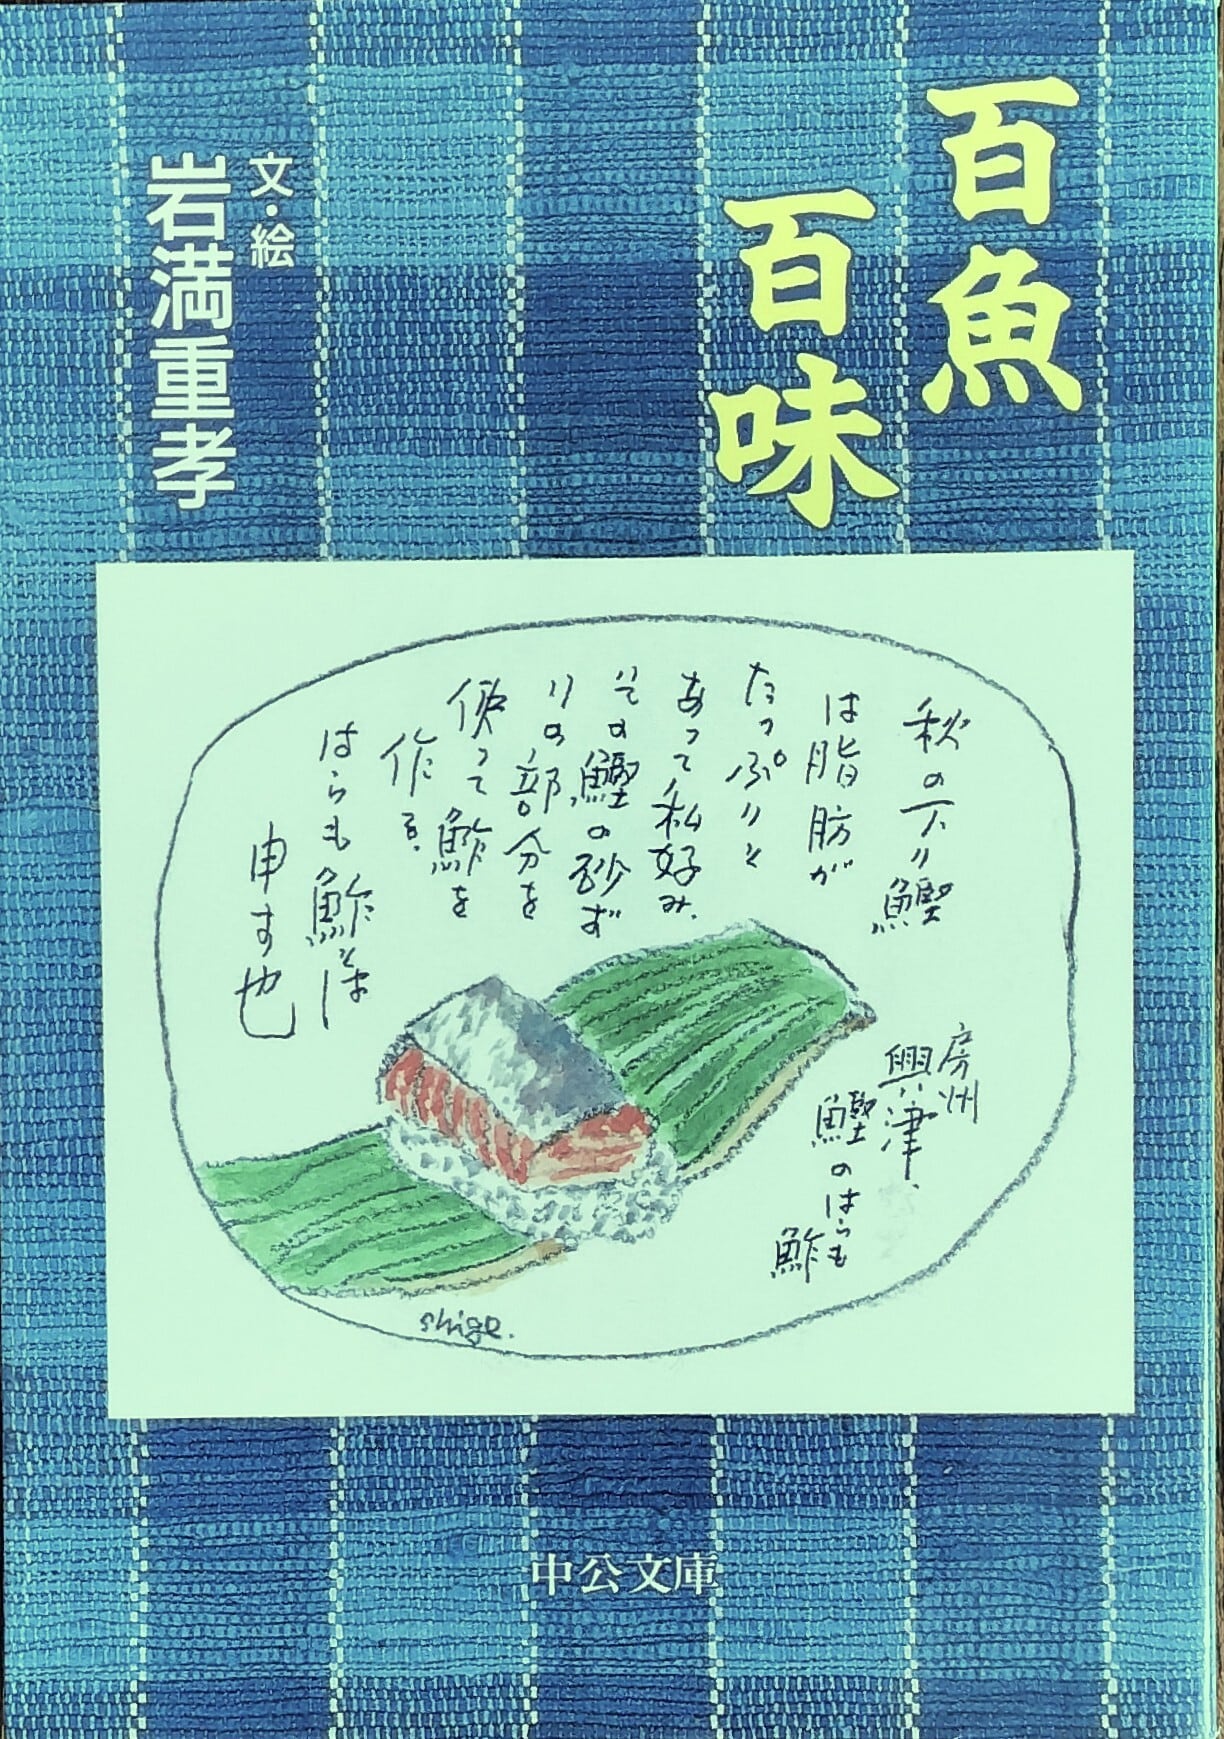 百魚
百味
文・絵
岩満重孝
秋の下り鰹
は脂肪が
たっぷりと
あって私好み、
その鰹の砂ず
りの部分を
使って鮓を
作る、
はらも鮓とは
申す也
房州
興津、
鰹のはらも
鮓
shige.
中公文庫